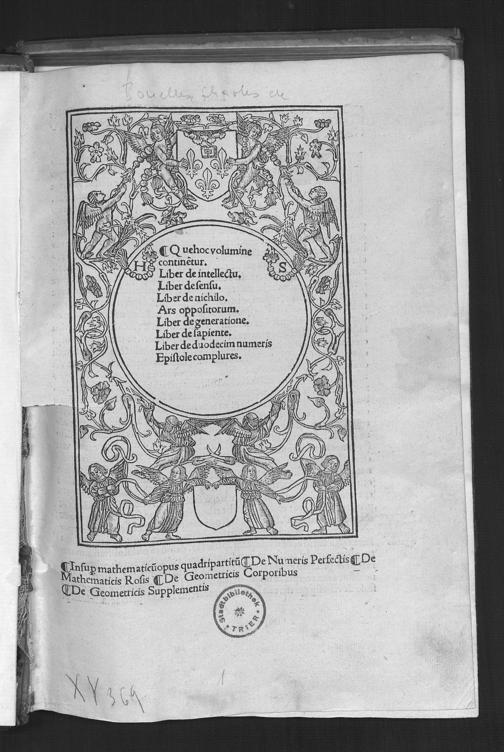 Bouelles, Charles de
H
S
¶ Quehoc volumine
continētur.
Liber de intellectu.
Liber de sensu.
Liber de nichilo.
Ars oppositorum.
Liber de generatione.
Liber de sapiente.
Liber de duodecim numeris
Epistole complures.
¶Insup mathematicū opus quadripartitū ¶De Numeris Perfectis ¶De
Mathematicis Rosis ¶De Geometricis Corporibus
¶De Geometricis Supplementis
Stadtbibliothek
TRIER
XV 369